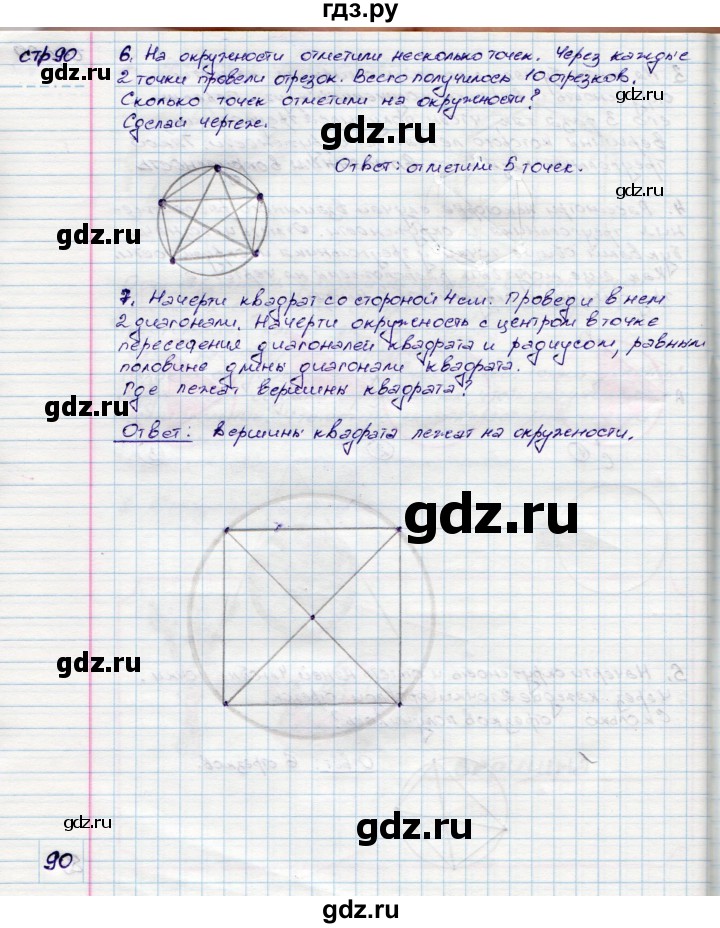 гдз.ру
стр90
6. На окружности отметили несколько точек. Через каждые
2 точки провели отрезок. Всего получилось 10 отрезков.
Сколько точек отметили на окружности?
Сделай чертеж.
gdz.ru
Ответ: отметили 5 точек.
gdz.ru
gdz.ru
gdz.ru
7. Начерти квадрат со стороной 4см. Проведи в нем
2 диагонали. Начерти окружность с центром в точке
пересечения диагоналей квадрата и радиусом, равным
половине длины диагонали квадрата.
Где лежат вершины квадрата?
gdz.ru
Ответ: Вершины квадрата лежат на окружности.
gdz.ru
gdz.ru
gdz.ru
gdz.ru
90
gdz.ru